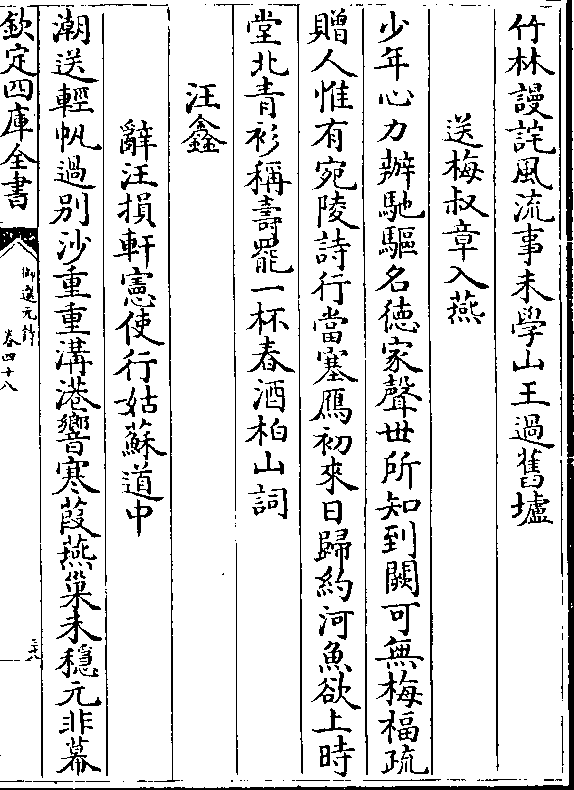 竹林謾詫風流事未學山王過舊壚
送梅叔章入燕
少年心力辦馳驅名德家聲世所知到闕可無梅福疏
贈人惟有宛陵詩行當塞鴈初來日歸約河魚欲上時
堂北青衫稱壽罷一杯春酒柏山詞
汪鑫
辭汪損軒憲使行姑蘇道中
潮送輕帆過别沙重重溝港響寒葭燕巢未穩元非幕
欽定四庫全書
御選元詩
卷四十八